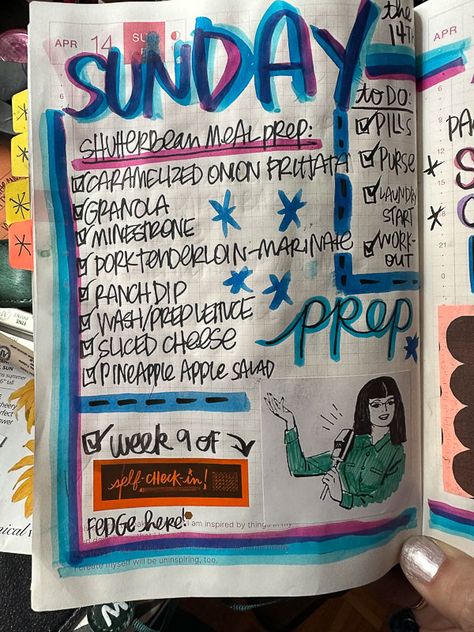 APR 14 SUN
SUNDAY
the
14th
SHUTTERBEAN MEAL PREP:
CARAMELIZED ONION FRITTATA
GRANOLA
MINESTRONE
PORK TENDERLOIN-MARINATE
RANCH DIP
WASH/PREP LETTUCE
SLICED CHEESE
PINEAPPLE APPLE SALAD
to DO:
PILLS
PURSE
LAUNDRY
START
WORK-
OUT
prep
week 9 of
self-CHECK-in!
FEDGE here!
am inspired by things in my
I create myself will be uninspiring, too.
APR